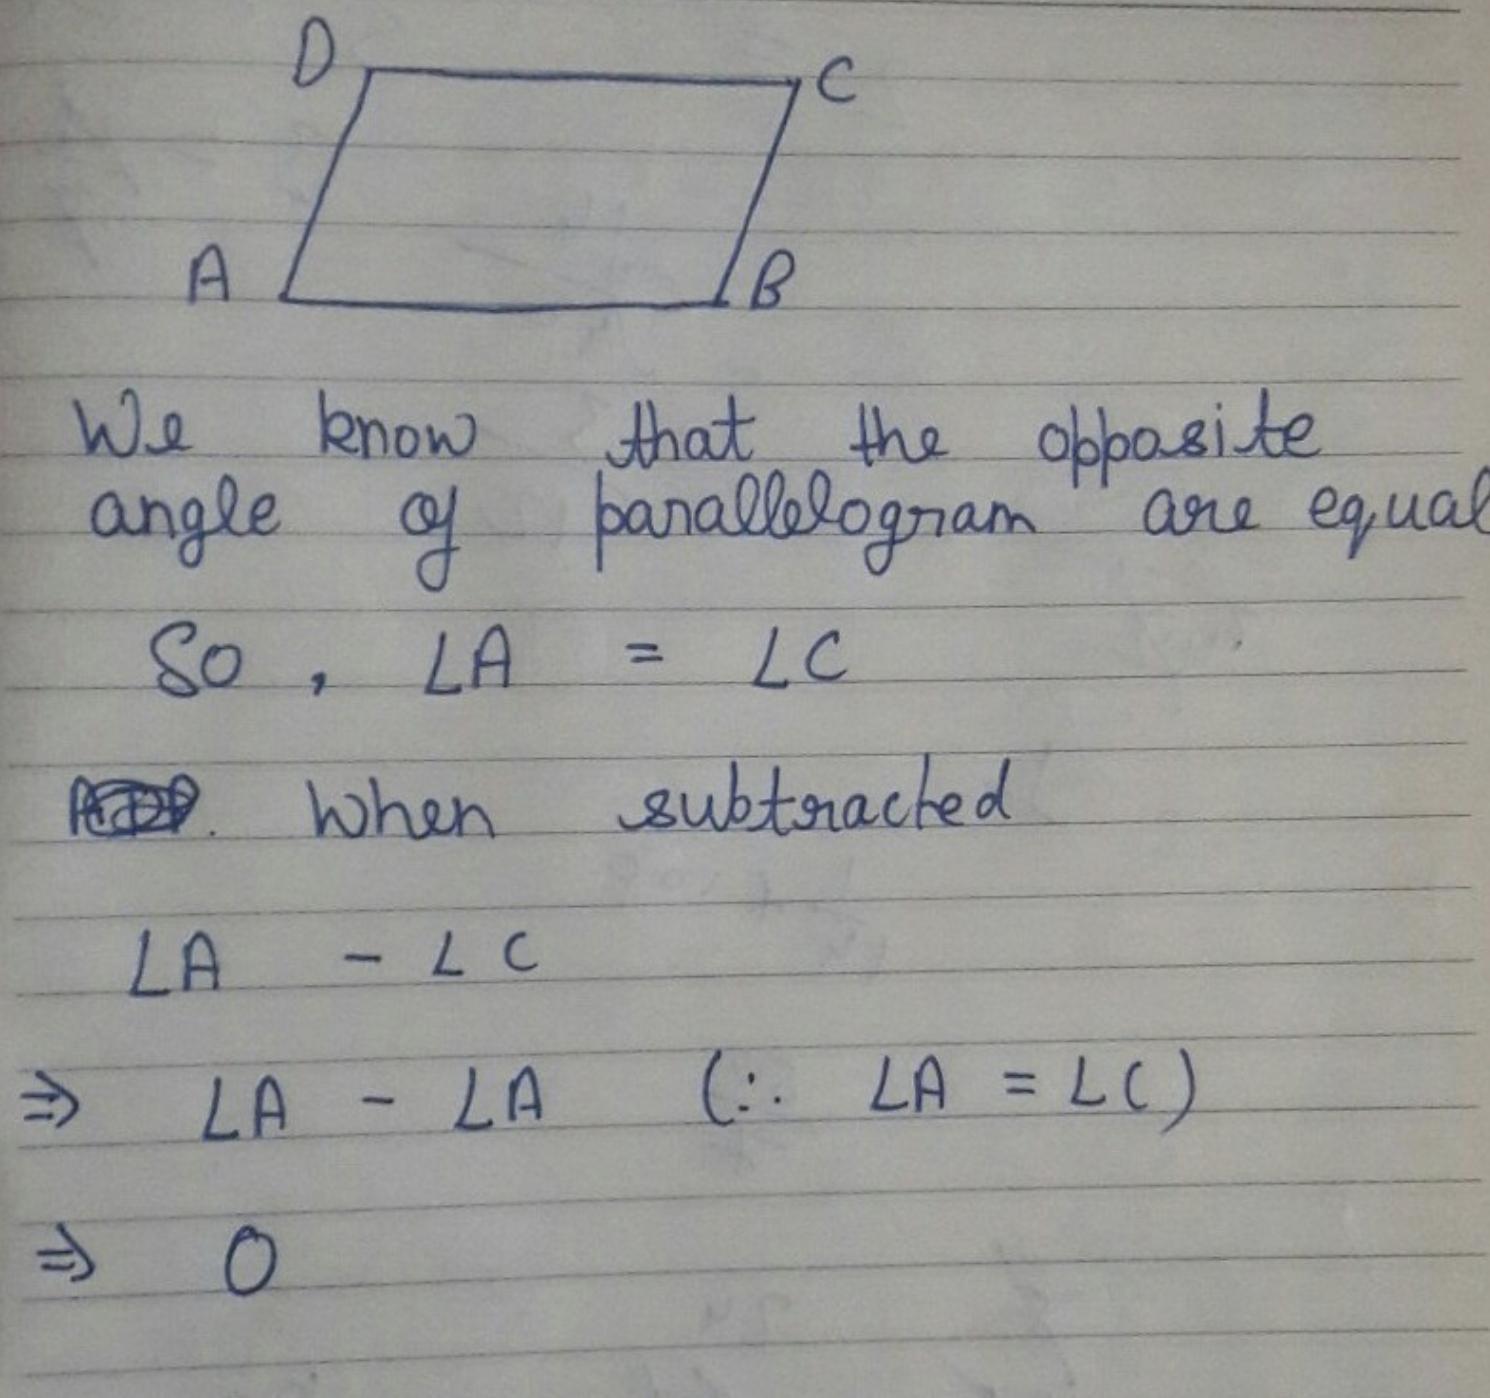 D C
A B
We know that the opposite
angle of parallelogram are equal
So, ∠A = ∠C
. When subtracted
∠A - ∠C
⇒ ∠A - ∠A (∵ ∠A = ∠C)
⇒ 0